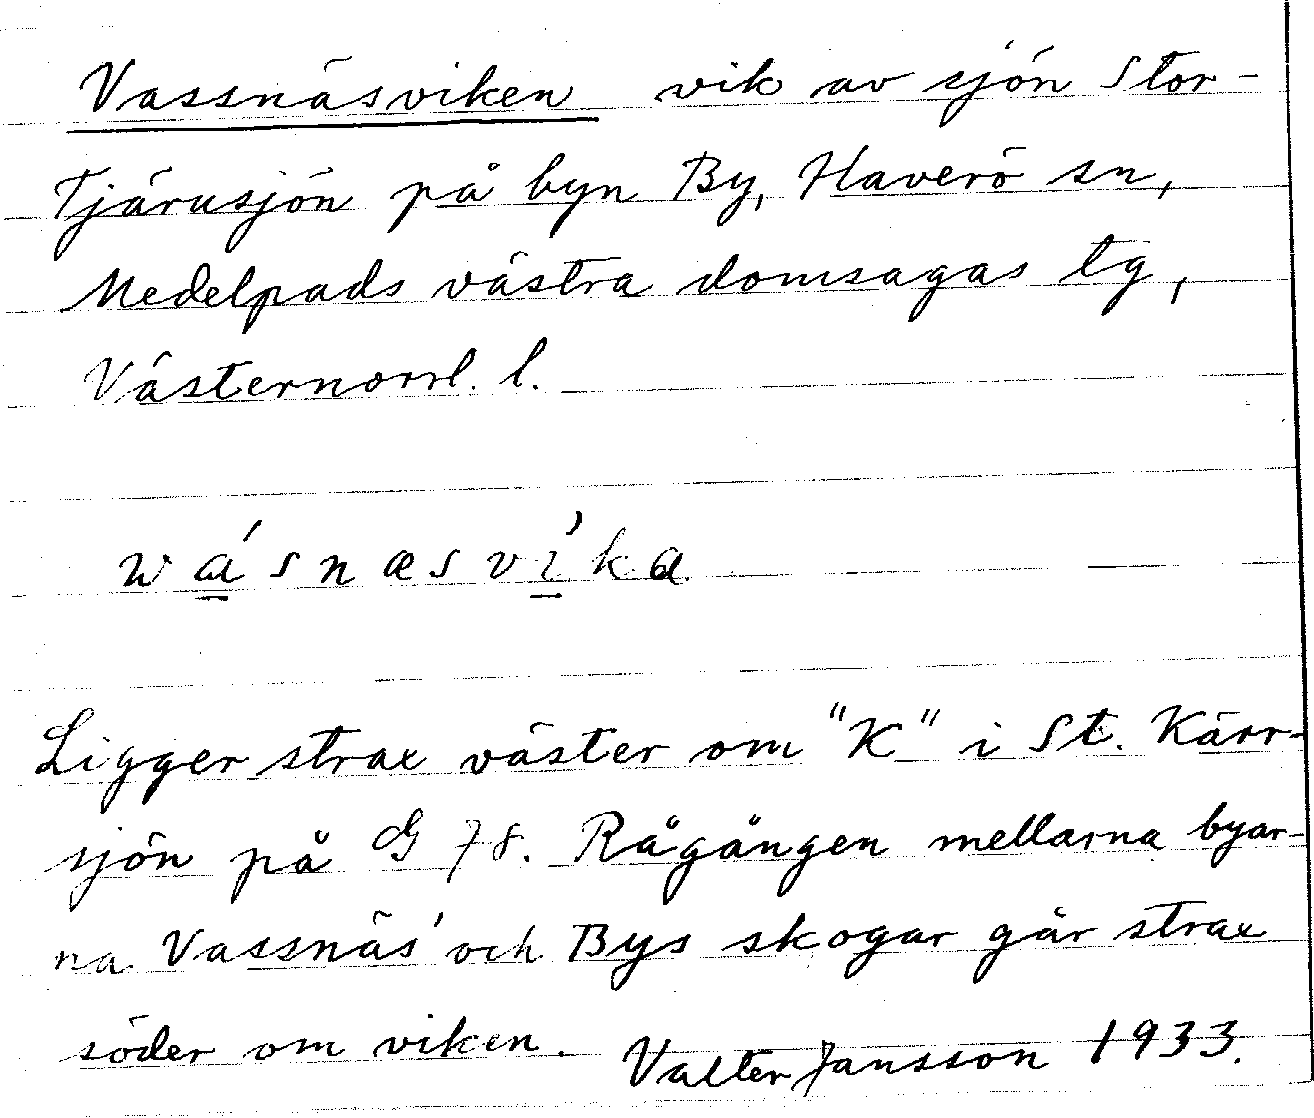 Vassnäsviken vik av sjön Stor-
Tjärusjön på byn By, Haverö sn,
Medelpads västra domsagas tg,
Västernorrl. l.
wásnæsvíka
Ligger strax väster om "K" i St. Kärr-
sjön på G 78. Rågången mellarna byar-
na Vassnäs' och Bys skogar går strax
söder om viken. Valter Jansson 1933.